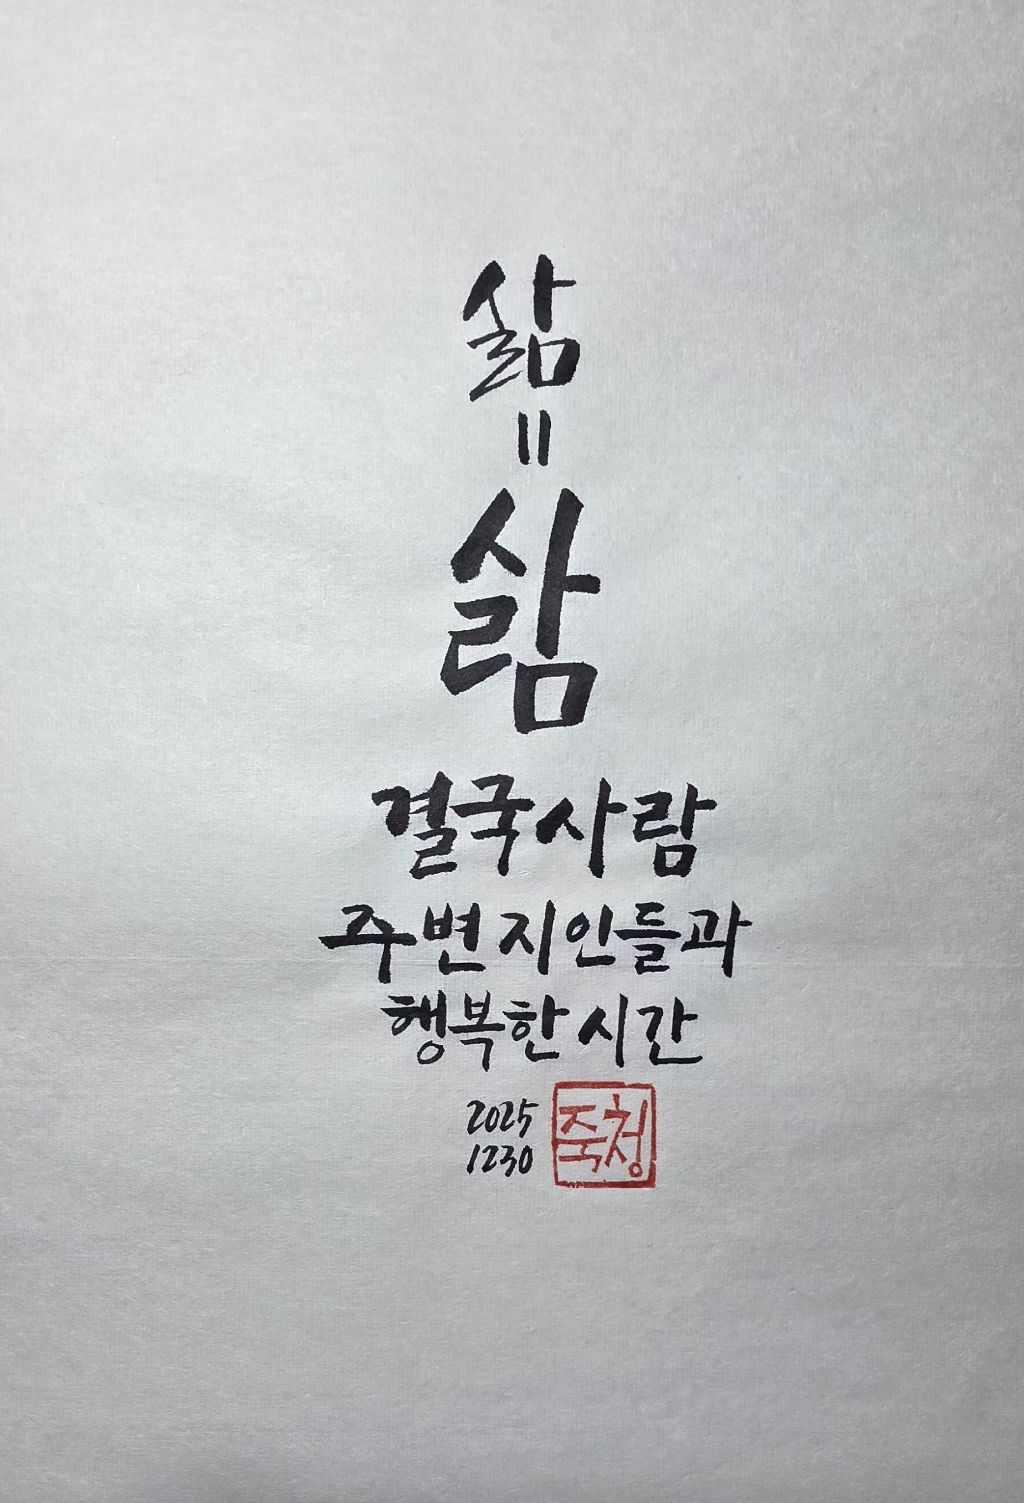 삶
=
삶
결국사람
주변 지인들과
행복한 시간
2025
1230
죽청